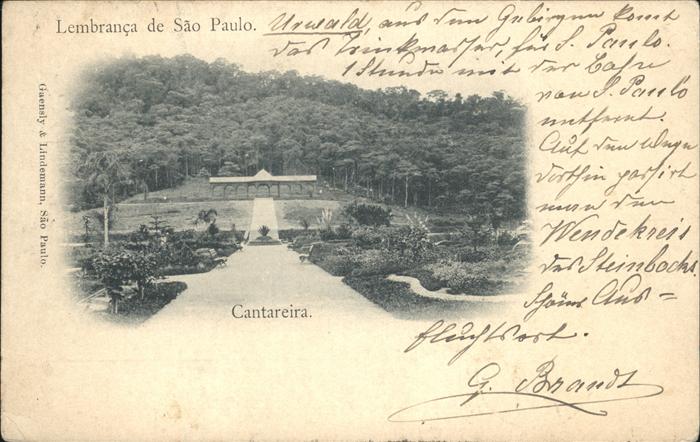 Lembrança de São Paulo.
Urwald, aus dem Gebirgen komt
das Trinkwasser, für S. Paulo.
1 Stunde mit der
von S. Paulo
entfernt.
Auf dem Wege
dorthin passirt
man den
Wendekreis
des Steinbocks
Schöner Aus=
fluchtsort.
G. Brandt
Gaensly & Lindemann, São Paulo.
Cantareira.